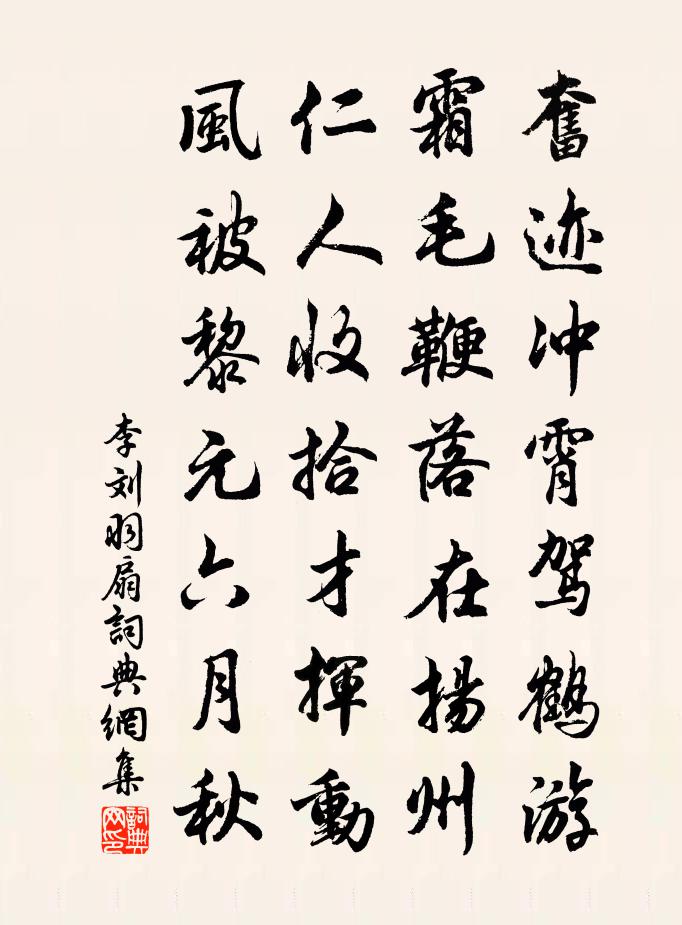 奮迹冲霄驾鹤游
霜毛鞭落在揚州
仁人收拾才揮動
風被黎元六月秋
李刘羽扇詞典網集
詞典
网印